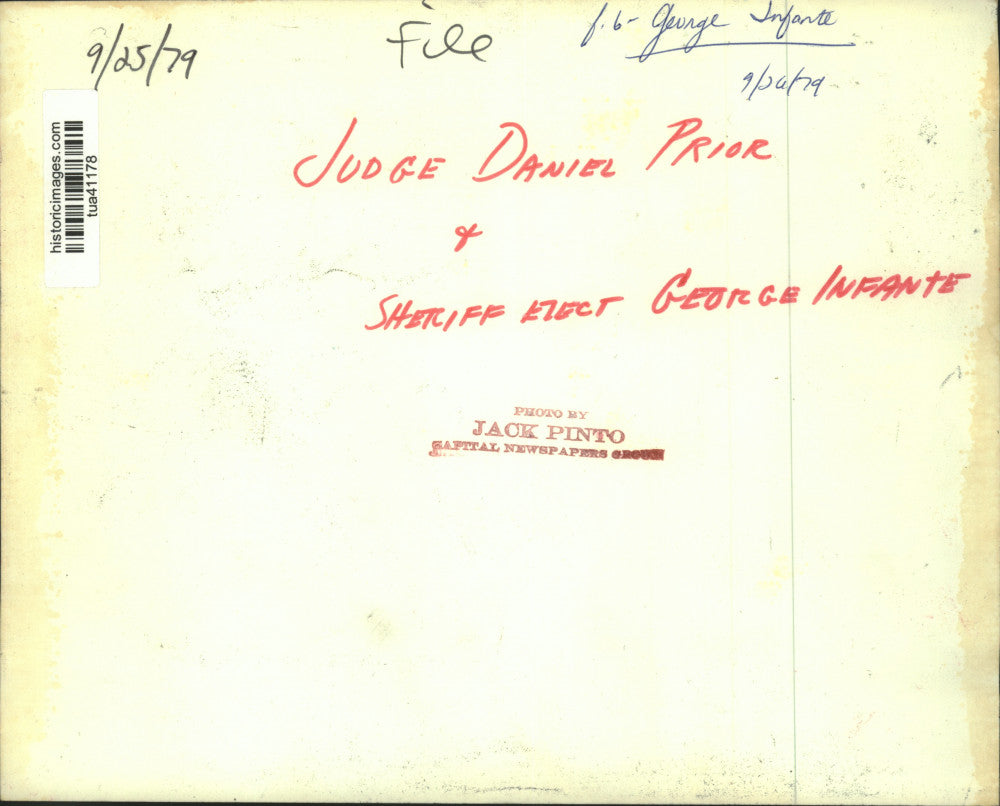 9/25/79
File
f. b- George Infante
9/26/79
historicimages.com
tua41178
JUDGE DANIEL PRIOR
&
SHERIFF ELECT GEORGE INFANTE
PHOTO BY
JACK PINTO
CAPITAL NEWSPAPERS GROUP